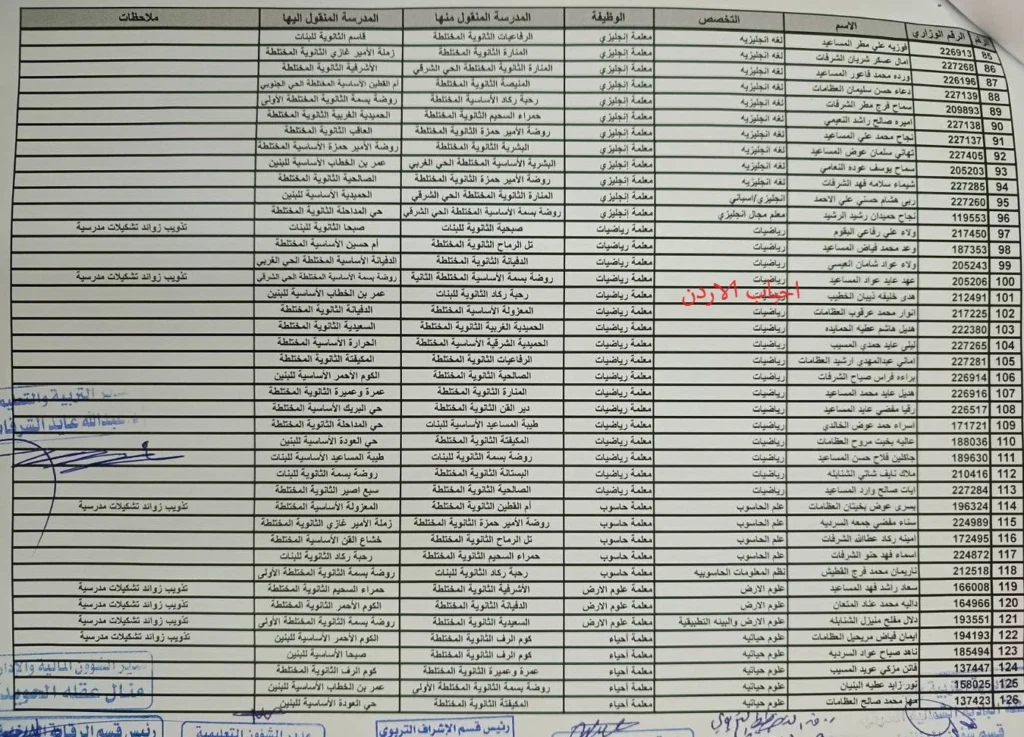 الرقم الوزاري الاسم التخصص الوظيفة المدرسة المنقول منها المدرسة المنقول اليها ملاحظات
85 226913 فوزيه علي مطر المساعيد لغه انجليزيه معلمة إنجليزي الرفاعيات الثانوية المختلطة قاسم الثانوية للبنات
86 227268 امال عسكر شريان الشرفات لغه انجليزيه معلمة إنجليزي المنارة الثانوية المختلطة زملة الأمير غازي الثانوية المختلطة
87 226196 ورده محمد فاعور المساعيد لغه انجليزيه معلمة إنجليزي المنارة الثانوية المختلطة الحي الشرقي الأشرفية الثانوية المختلطة
88 227139 دعاء حسن سليمان العظامات لغه انجليزيه معلمة إنجليزي المنيصة الثانوية المختلطة أم القطين الأساسية المختلطة الحي الجنوبي
89 209893 سماح فرج مطر الشرفات لغه انجليزيه معلمة إنجليزي رحبة ركاد الأساسية المختلطة روضة بسمة الثانوية المختلطة الأولى
90 227138 اميره صالح راشد النعيمي لغه انجليزيه معلمة إنجليزي حمراء السحيم الثانوية المختلطة الحميدية الغربية الثانوية المختلطة
91 227137 نجاح محمد علي المساعيد لغه انجليزيه معلمة إنجليزي روضة الأمير حمزة الثانوية المختلطة العاقب الثانوية المختلطة
92 227405 تهاني سلمان عوض المساعيد لغه انجليزيه معلمة إنجليزي البشرية الثانوية المختلطة روضة الأمير حمزة الأساسية المختلطة
93 205203 سماح يوسف عوده النعامي لغه انجليزيه معلمة إنجليزي البشرية الأساسية المختلطة الحي الغربي عمر بن الخطاب الأساسية للبنين
94 227285 شيماء سلامه فهد الشرفات لغه انجليزيه معلمة إنجليزي روضة الأمير حمزة الثانوية المختلطة الصالحية الثانوية المختلطة
95 227260 ربى هشام حسني علي الاحمد انجليزي/اسباني معلمة إنجليزي المنارة الثانوية المختلطة الحي الشرقي الحميدية الأساسية للبنين
96 119553 نجاح حميدان رشيد الرشيد معلم مجال انجليزي معلمة إنجليزي روضة بسمة الأساسية المختلطة الحي الشرقي حي المداحلة الثانوية المختلطة
97 217450 ولاء علي رفاعي البقوم رياضيات معلمة رياضيات صبحية الثانوية للبنات صبحا الثانوية للبنات تذويب زوائد تشكيلات مدرسية
98 187353 وعد محمد فياض المساعيد رياضيات معلمة رياضيات تل الرماح الثانوية المختلطة أم حسين الأساسية المختلطة
99 205243 ولاء عواد شامان العيسي رياضيات معلمة رياضيات الدفيانة الثانوية المختلطة الدفيانة الأساسية المختلطة الحي الغربي
100 205206 عهد عايد عواد المساعيد رياضيات معلمة رياضيات روضة بسمة الأساسية المختلطة الثانية روضة بسمة الأساسية المختلطة الحي الشرقي تذويب زوائد تشكيلات مدرسية
101 212491 هدى خليفه ذيبان الخطيب رياضيات معلمة رياضيات رحبة ركاد الثانوية للبنات عمر بن الخطاب الأساسية للبنين
الاردن
102 217225 انوار محمد عرقوب العظامات رياضيات معلمة رياضيات المعزولة الأساسية المختلطة الدفيانة الثانوية المختلطة
103 222380 هديل هاشم عطيه الحمايده رياضيات معلمة رياضيات الحميدية الغربية الثانوية المختلطة السعيدية الثانوية المختلطة
104 227265 ليلى عايد حمدي المسيب رياضيات معلمة رياضيات الحميدية الشرقية الأساسية المختلطة الحرارة الأساسية المختلطة
105 227281 اماني عبدالمهدي ارشيد العظامات رياضيات معلمة رياضيات الرفاعيات الثانوية المختلطة المكيفتة الثانوية المختلطة
106 226914 براءه فراس صياح الشرفات رياضيات معلمة رياضيات الصالحية الثانوية المختلطة الكوم الأحمر الأساسية للبنين
107 226916 هديل عايد محمد المساعيد رياضيات معلمة رياضيات المنارة الثانوية المختلطة عمرة وعميرة الثانوية المختلطة
108 226517 رقيا مفضي عايد المساعيد رياضيات معلمة رياضيات دير القن الثانوية المختلطة حي البريك الأساسية المختلطة
109 171721 اسراء حمد عوض الخالدي رياضيات معلمة رياضيات طيبة المساعيد الأساسية للبنات حي المداحلة الثانوية المختلطة
110 188036 عاليه بخيت مروح العظامات رياضيات معلمة رياضيات المكيفتة الثانوية المختلطة حي العودة الأساسية للبنين
111 189630 جاكلين فلاح حسن المساعيد رياضيات معلمة رياضيات روضة بسمة الثانوية للبنات طيبة المساعيد الأساسية للبنات
112 210416 ملاك نايف شاتي الشنابله رياضيات معلمة رياضيات البستانة الثانوية المختلطة روضة بسمة الثانوية للبنات
113 227284 ايات صالح وارد المساعيد رياضيات معلمة رياضيات الصالحية الثانوية المختلطة سبع اصير الثانوية المختلطة
114 196324 يسرى عوض بخيتان العظامات علم الحاسوب معلمة حاسوب أم القطين الثانوية المختلطة المعزولة الأساسية المختلطة تذويب زوائد تشكيلات مدرسية
115 224989 سناء مفضي جمعه السرديه علم الحاسوب معلمة حاسوب روضة الأمير حمزة الثانوية المختلطة زملة الأمير غازي الثانوية المختلطة
116 172495 امينه ركاد عطاالله الشرفات علم الحاسوب معلمة حاسوب تل الرماح الثانوية المختلطة خشاع القن الأساسية المختلطة
117 224872 اسماء فهد حنو الشرفات علم الحاسوب معلمة حاسوب حمراء السحيم الثانوية المختلطة رحبة ركاد الثانوية للبنات
118 212518 ناريمان محمد فرج القطيش نظم المعلومات الحاسوبيه معلمة حاسوب رحبة ركاد الثانوية للبنات روضة بسمة الثانوية المختلطة الأولى
119 166008 سعاد راشد فهد المساعيد علوم الارض معلمة علوم الارض الأشرفية الثانوية المختلطة حمراء السحيم الثانوية المختلطة تذويب زوائد تشكيلات مدرسية
120 164966 داليه محمد عناد المتعان علوم الارض معلمة علوم الارض الدفيانة الثانوية المختلطة الكوم الأحمر الثانوية المختلطة تذويب زوائد تشكيلات مدرسية
121 193551 دلال مفلح منيزل الشنابله علوم الارض والبيئه التطبيقية معلمة علوم الارض السعيدية الثانوية المختلطة روضة بسمة الثانوية المختلطة الأولى تذويب زوائد تشكيلات مدرسية
122 194193 ايمان فياض مريحيل العظامات علوم حياتيه معلمة أحياء كوم الرف الثانوية المختلطة الكوم الأحمر الأساسية للبنين تذويب زوائد تشكيلات مدرسية
123 185494 ناهد صياح عواد السرديه علوم حياتيه معلمة أحياء كوم الرف الثانوية المختلطة صبحا الأساسية للبنين
124 137447 فاتن مزكي عويد المسيب علوم حياتيه معلمة أحياء عمرة وعميرة الثانوية المختلطة كوم الرف الثانوية المختلطة
125 158025 نور زايد عطيه البنيان علوم حياتيه معلمة أحياء روضة بسمة الثانوية المختلطة الأولى عمر بن الخطاب الأساسية للبنين
126 137423 مها محمد صالح العظامات علوم حياتيه معلمة أحياء المكيفتة الثانوية المختلطة حي العودة الأساسية للبنين
التربية والتعليم
عبدالله عايد الشرفات
مدير الشؤون المالية والادارية
منال عقله
رئيس قسم الإشراف التربوي
مدير الشؤون التعليمية
رئيس قسم الرقابة